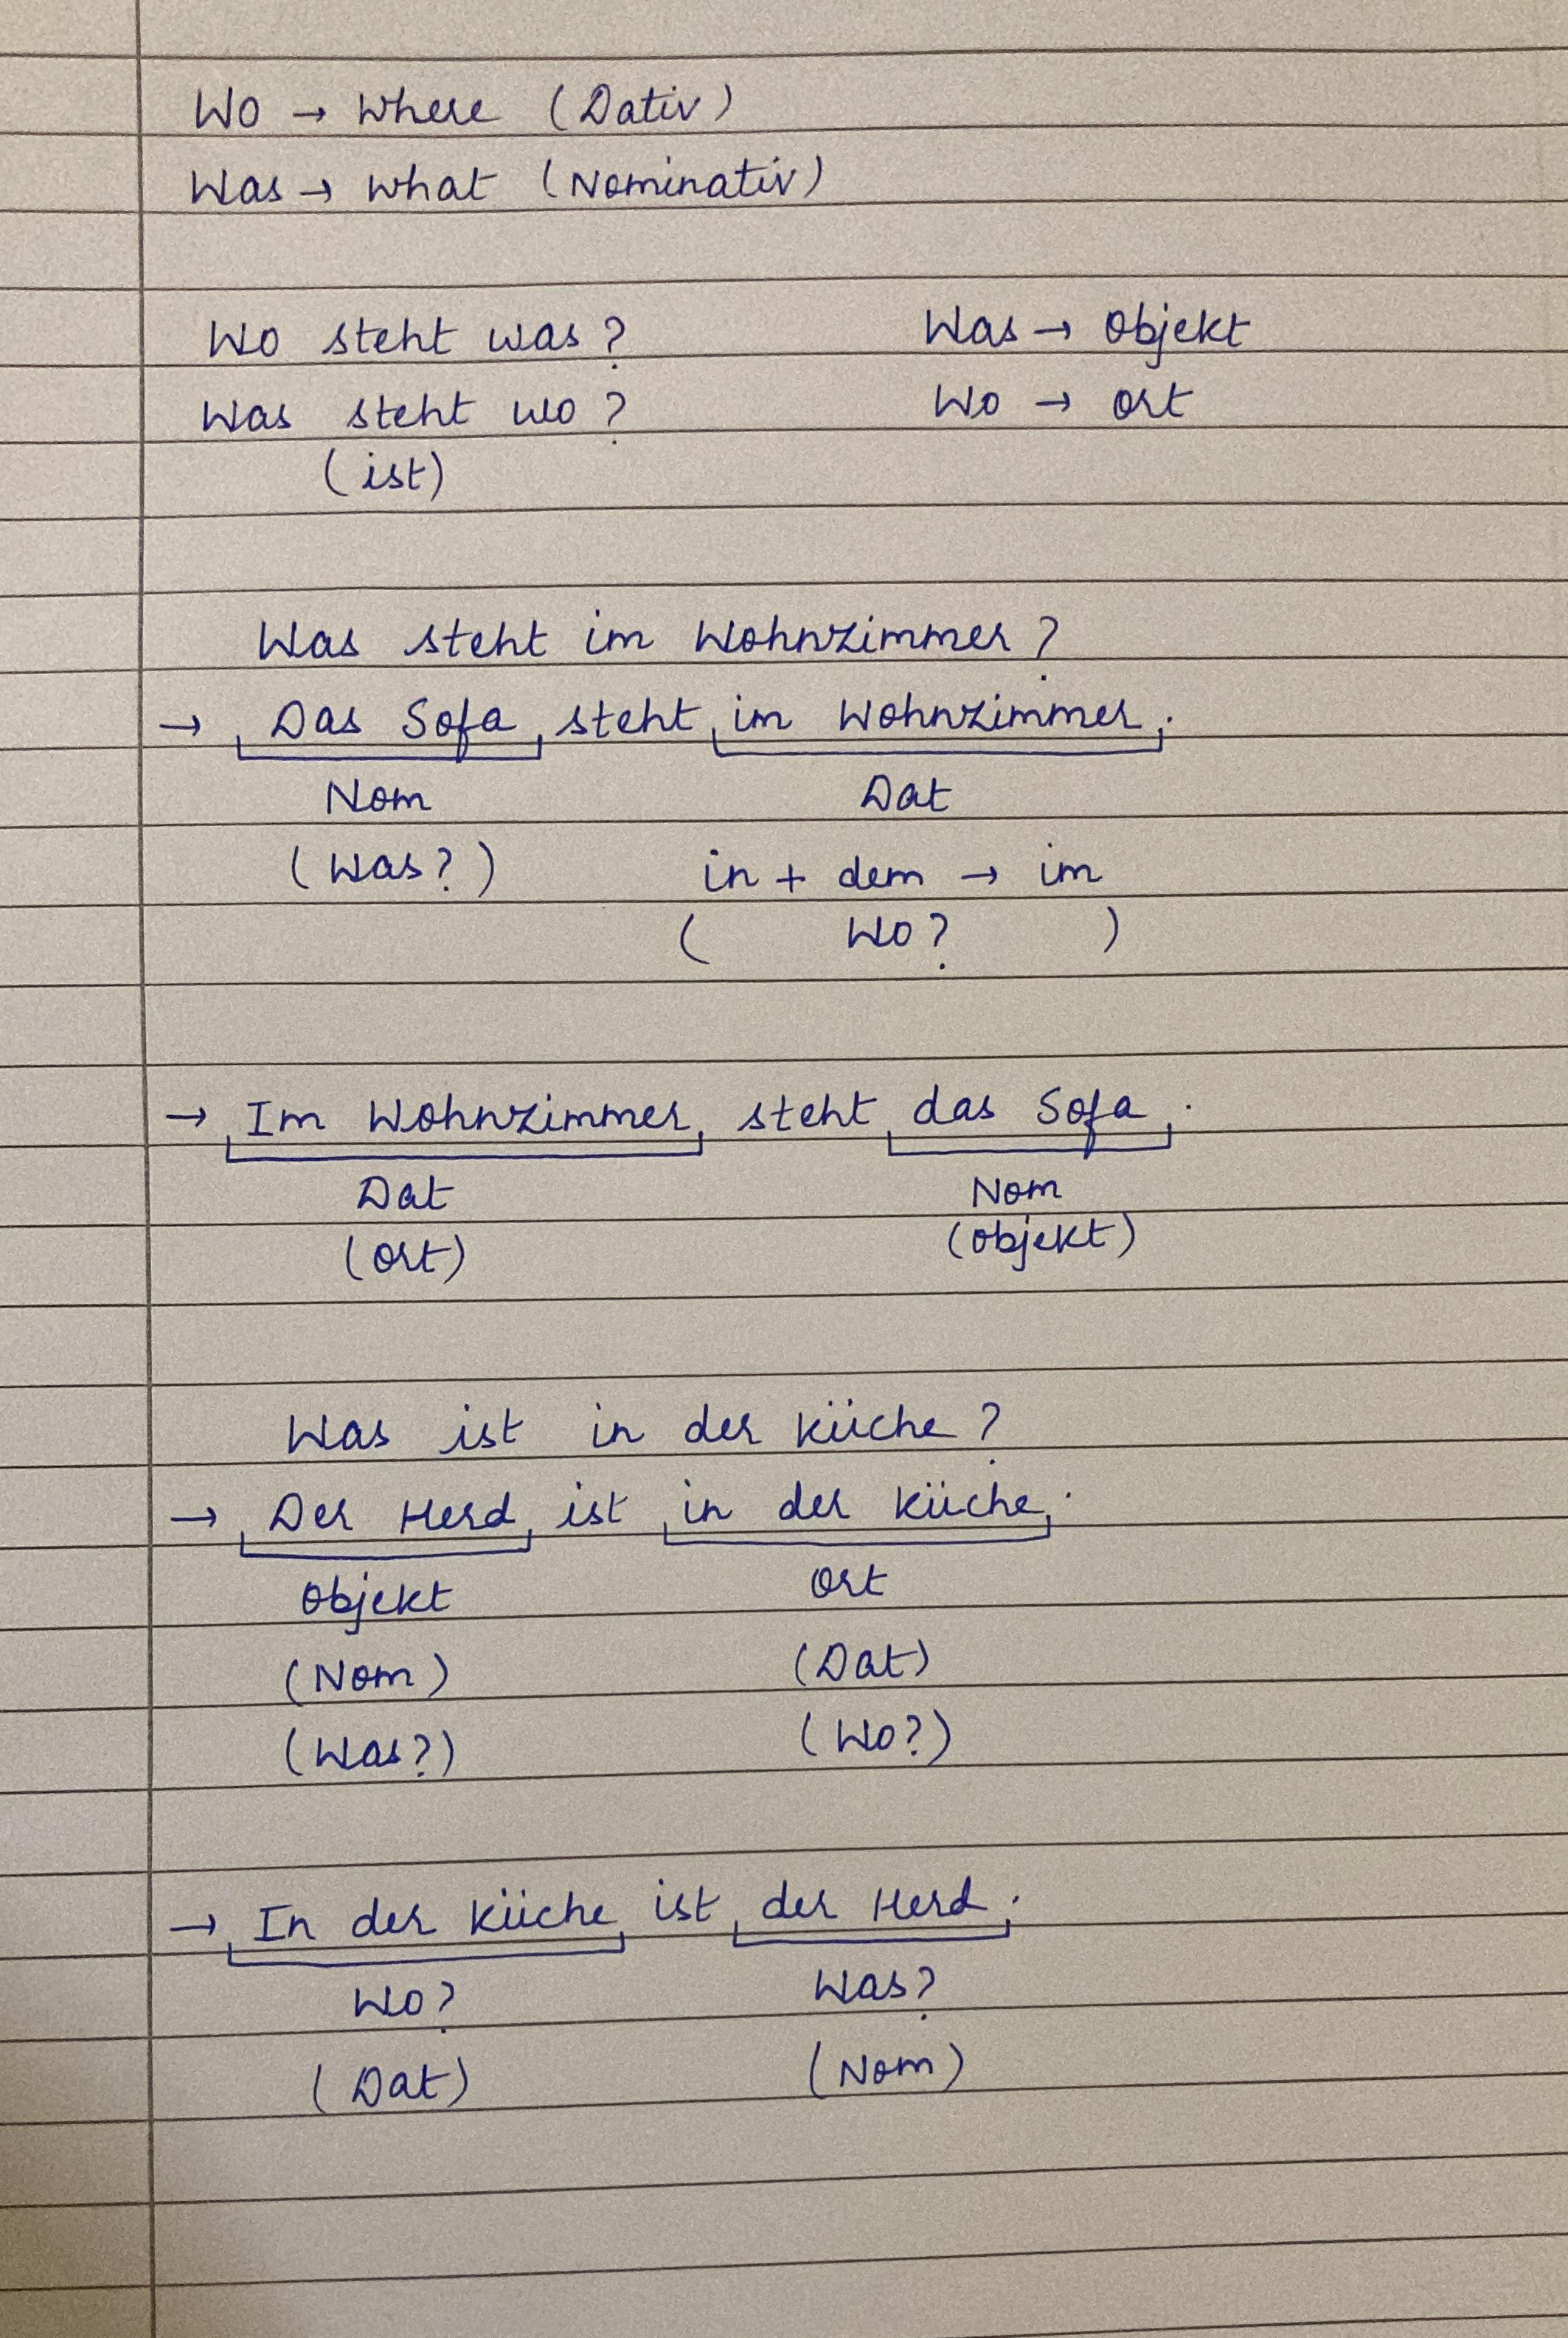 Wo → Where (Dativ)
Was → What (Nominativ)
Wo steht was?
Was → Objekt
Was steht wo?
Wo → Ort
(ist)
Was steht im Wohnzimmer?
→ Das Sofa steht im Wohnzimmer.
Nom Dat
(Was?) in + dem → im
( Wo? )
→ Im Wohnzimmer steht das Sofa.
Dat Nom
(Ort) (Objekt)
Was ist in der Küche?
→ Der Herd ist in der Küche.
Objekt Ort
(Nom) (Dat)
(Was?) (Wo?)
→ In der Küche ist der Herd.
Wo? Was?
(Dat) (Nom)